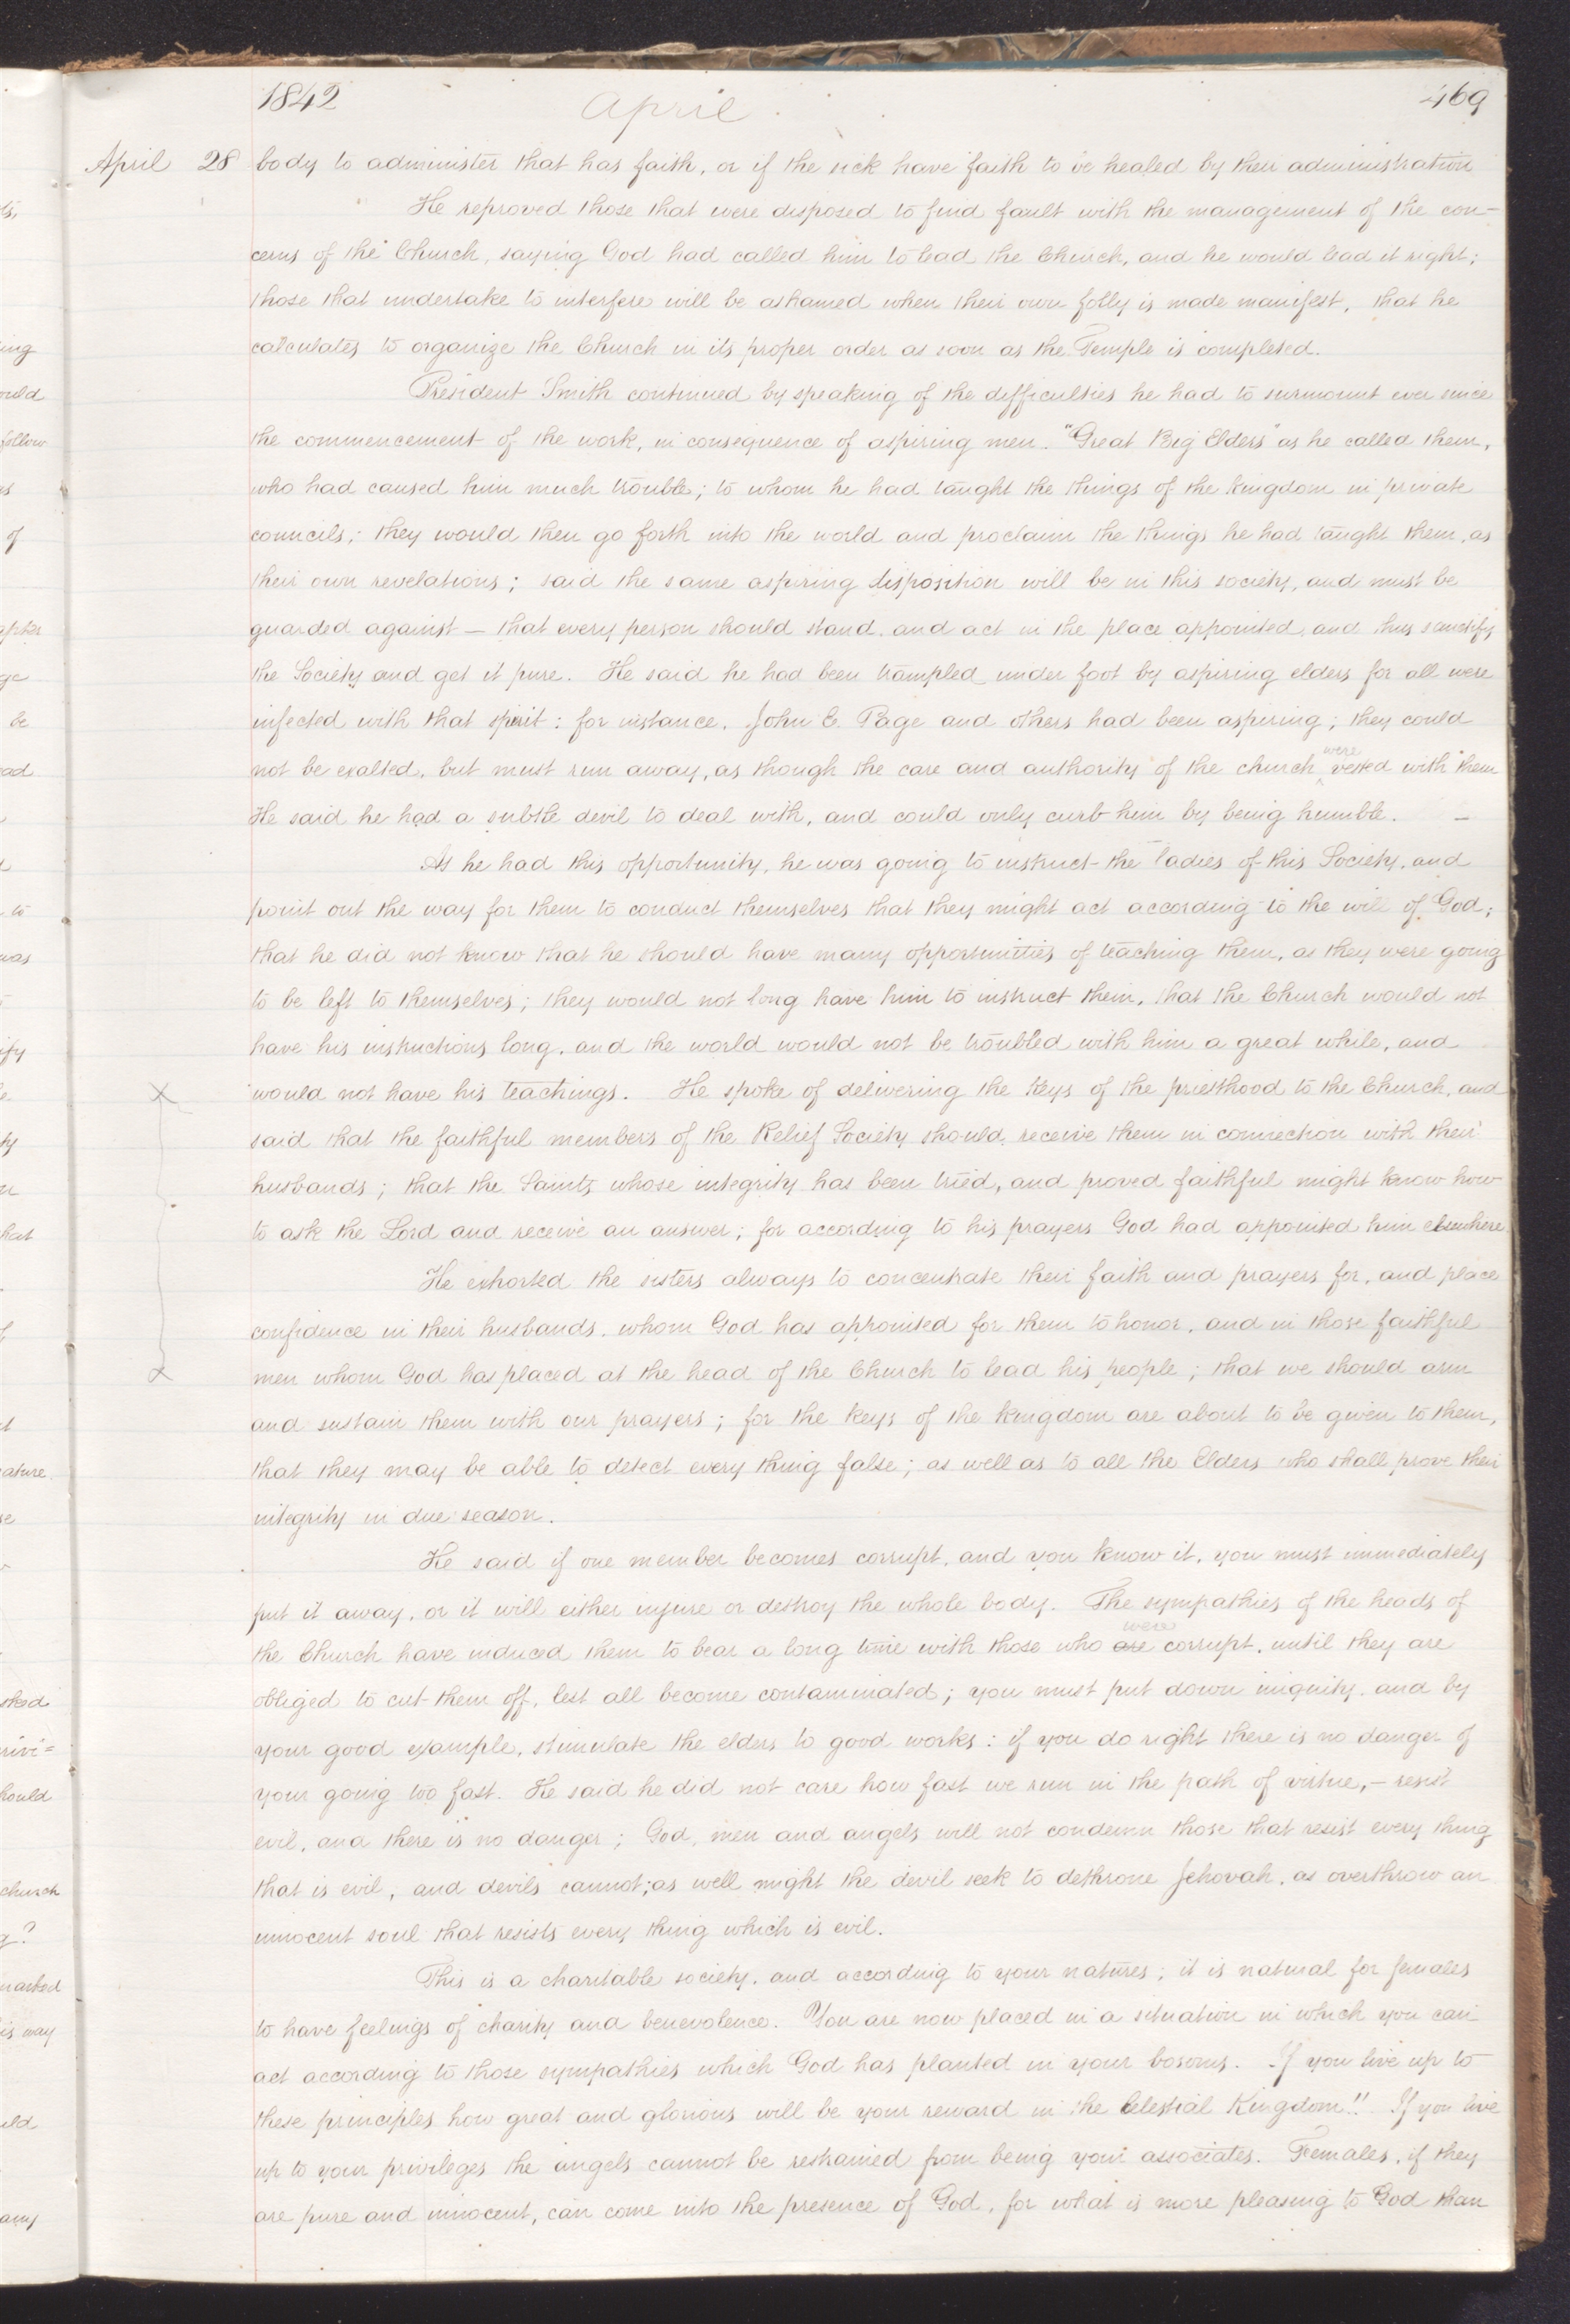 1842 April 469
April 28 body to administer that has faith, or if the sick have faith to be healed by their administration
He reproved those that were disposed to find fault with the management of the con-
cerns of the Church, saying God had called him to lead the Church, and he would lead it right;
those that undertake to interfere will be ashamed when their own folly is made manifest, that he
calculates to organize the Church in its proper order as soon as the Temple is completed.
President Smith continued by speaking of the difficulties he had to surmount ever since
the commencement of the work, in consequence of aspiring men. "Great Big Elders" as he called them,
who had caused him much trouble; to whom he had taught the things of the kingdom in private
councils; they would then go forth into the world and proclaim the things he had taught them, as
their own revelations; said the same aspiring disposition will be in this society, and must be
guarded against — that every person should stand, and act in the place appointed, and thus sanctify
the Society and get it pure. He said he had been trampled under foot by aspiring elders for all were
infected with that spirit: for instance, John E. Page and others had been aspiring; they could
not be exalted, but must run away, as though the care and authority of the church were vested with them
He said he had a subtle devil to deal with, and could only curb him by being humble. —
As he had this opportunity, he was going to instruct the ladies of this Society, and
point out the way for them to conduct themselves that they might act according to the will of God;
that he did not know that he should have many opportunities of teaching them, as they were going
to be left to themselves; they would not long have him to instruct them, that the Church would not
have his instructions long, and the world would not be troubled with him a great while, and
would not have his teachings. He spoke of delivering the keys of the priesthood to the Church, and
said that the faithful members of the Relief Society should receive them in connection with their
husbands; that the Saints whose integrity has been tried, and proved faithful might know how
to ask the Lord and receive an answer; for according to his prayers God had appointed him elsewhere
He exhorted the sisters always to concentrate their faith and prayers for, and place
confidence in their husbands, whom God has appointed for them to honor, and in those faithful
men whom God has placed at the head of the Church to lead his people; that we should arm
and sustain them with our prayers; for the keys of the kingdom are about to be given to them,
that they may be able to detect every thing false; as well as to all the Elders who shall prove their
integrity in due season.
He said if one member becomes corrupt, and you know it, you must immediately
put it away, or it will either injure or destroy the whole body. The sympathies of the heads of
the Church have induced them to bear a long time with those who are were corrupt, until they are
obliged to cut them off, lest all become contaminated; you must put down iniquity, and by
your good example, stimulate the elders to good works: if you do right there is no danger of
your going too fast. He said he did not care how fast we run in the path of virtue, — resist
evil, and there is no danger; God, men and angels will not condemn those that resist every thing
that is evil, and devils cannot; as well might the devil seek to dethrone Jehovah, as overthrow an
innocent soul that resists every thing which is evil.
This is a charitable society, and according to your natures; it is natural for females
to have feelings of charity and benevolence. You are now placed in a situation in which you can
act according to those sympathies which God has planted in your bosoms. If you live up to
these principles how great and glorious will be your reward in the Celestial Kingdom!! If you live
up to your privileges the angels cannot be restrained from being your associates. Females, if they
are pure and innocent, can come into the presence of God, for what is more pleasing to God than